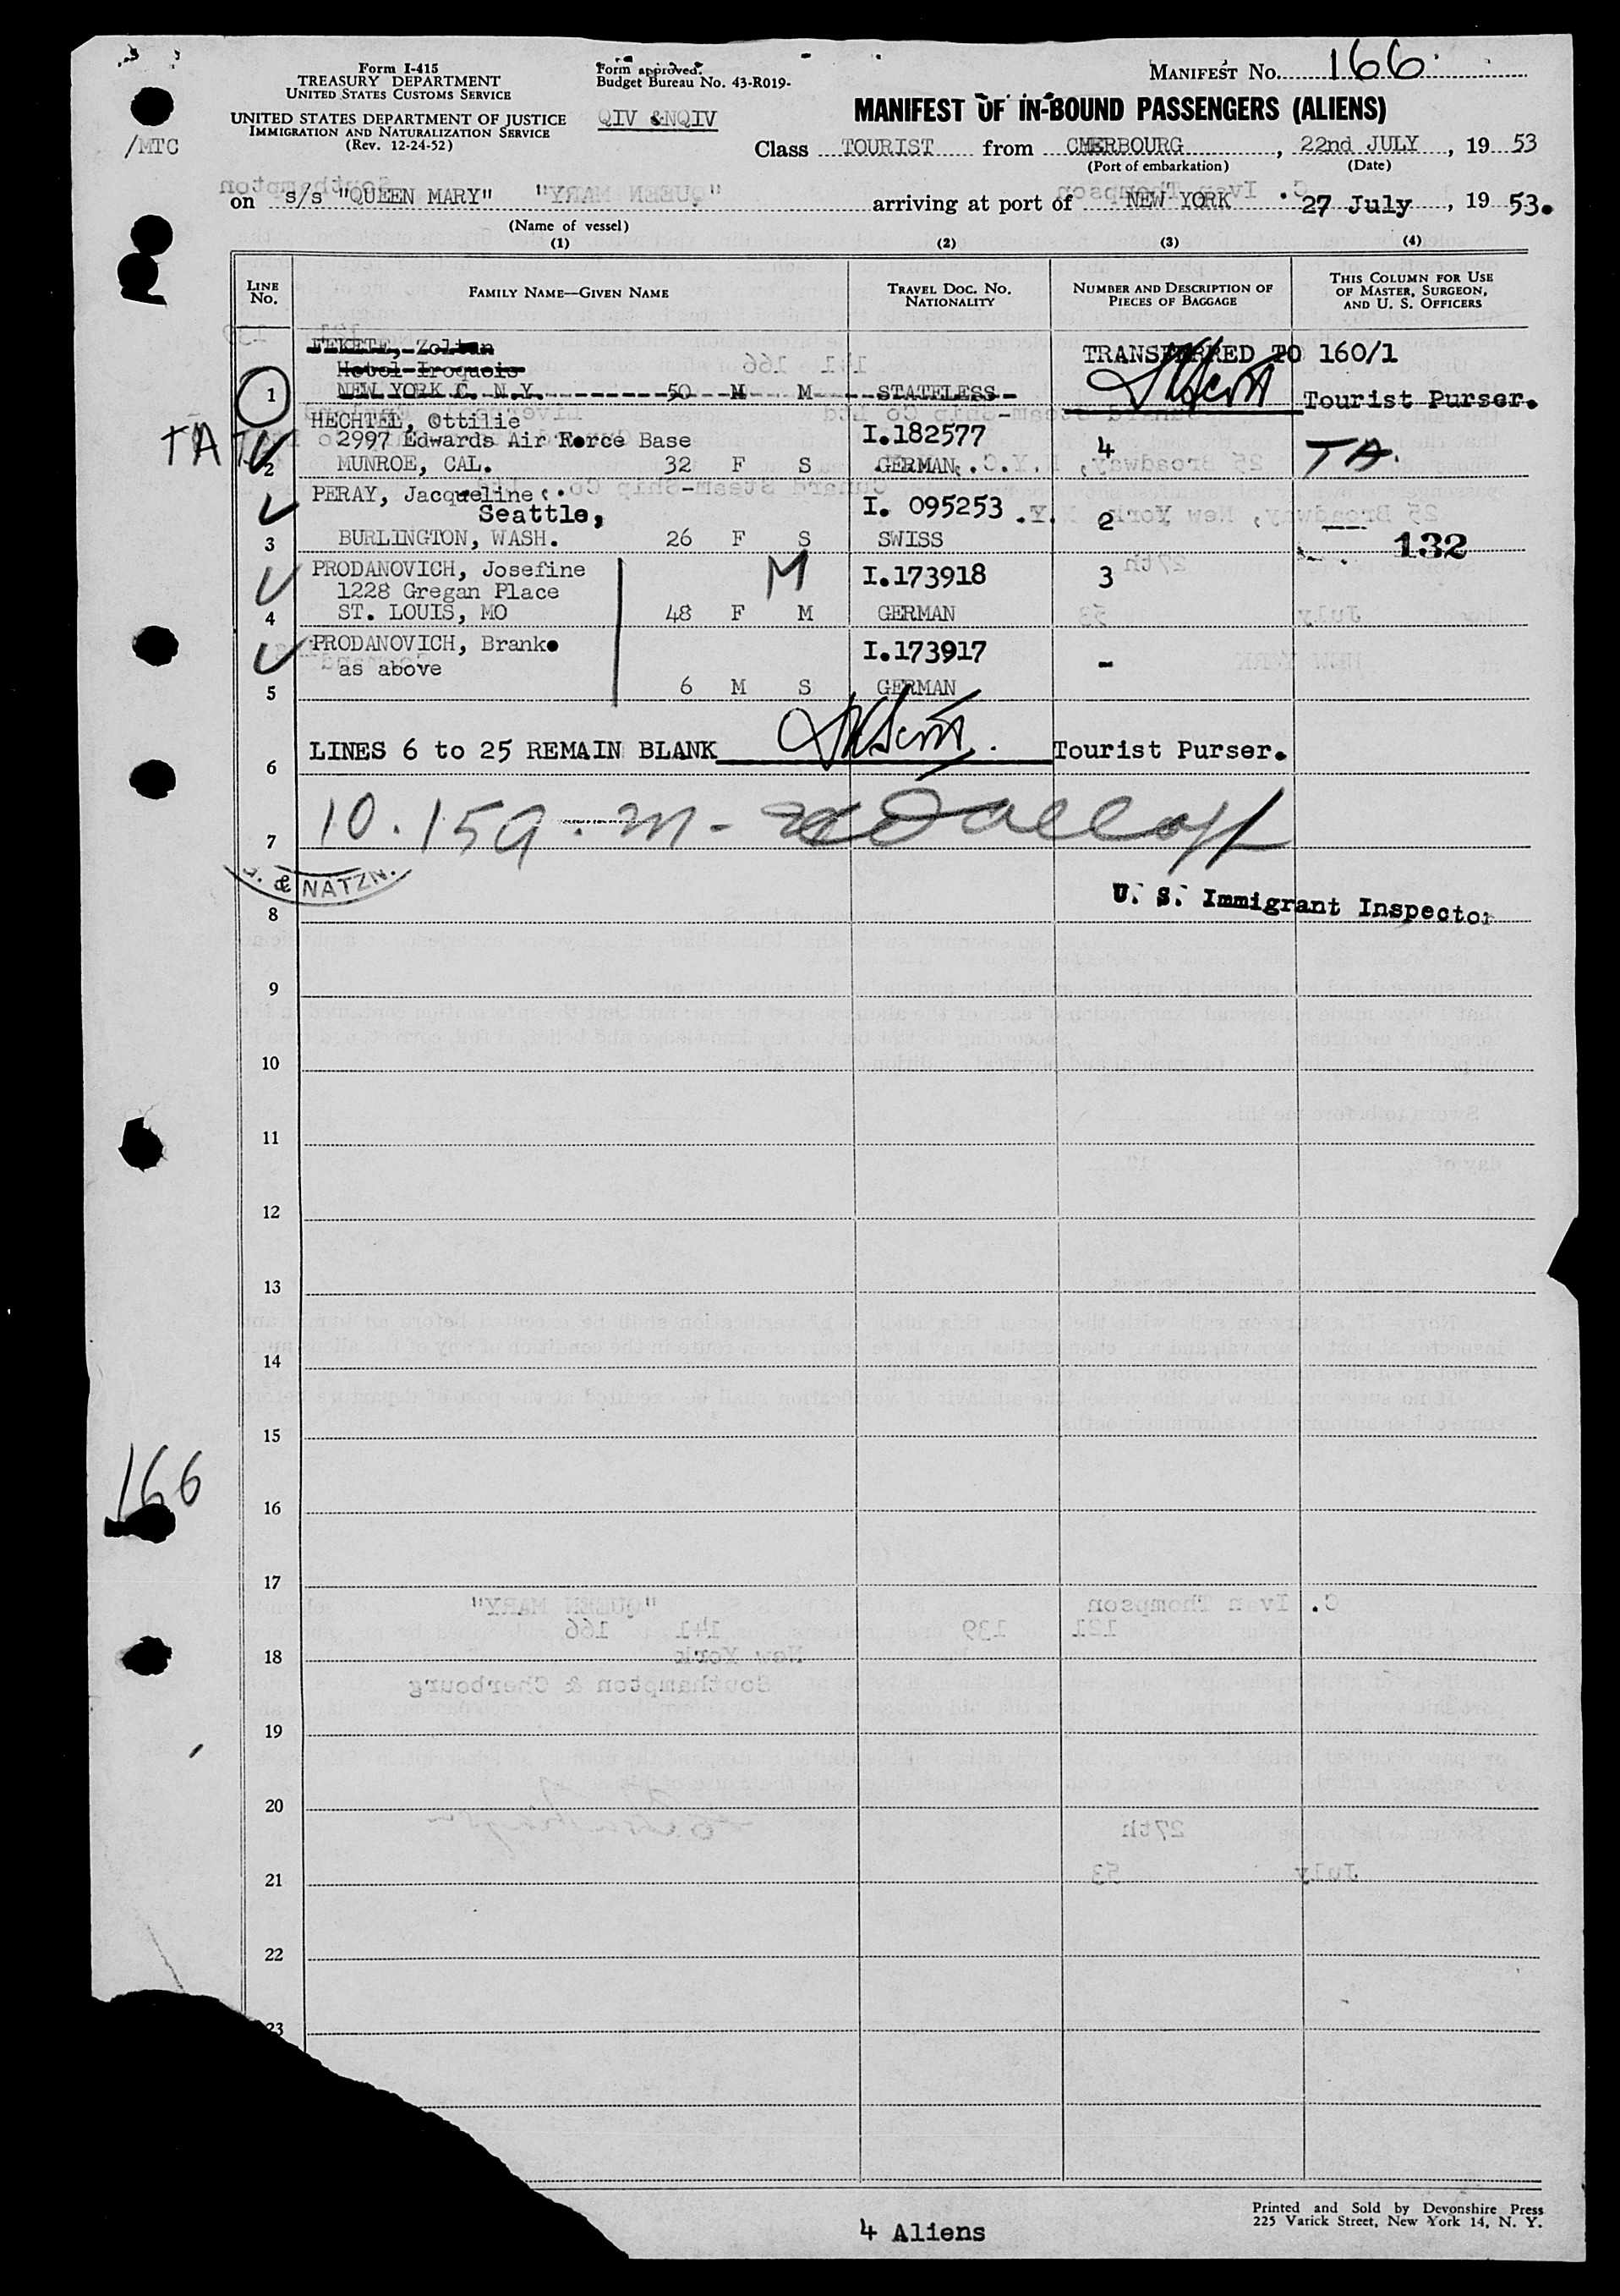 Form I-415
TREASURY DEPARTMENT
UNITED STATES CUSTOMS SERVICE
UNITED STATES DEPARTMENT OF JUSTICE
IMMIGRATION AND NATURALIZATION SERVICE
(Rev. 12-24-52)
/MTC
Form approved.
Budget Bureau No. 43-R019-
QIV & NQIV
MANIFEST NO. 166
MANIFEST OF IN-BOUND PASSENGERS (ALIENS)
Class TOURIST from CHERBOURG, 22nd JULY, 19 53
(Port of embarkation) (Date)
on s/s "QUEEN MARY" arriving at port of NEW YORK 27 July, 19 53.
(Name of vessel)
(1) (2) (3) (4)
LINE No. FAMILY NAME—GIVEN NAME TRAVEL DOC. NO. NATIONALITY NUMBER AND DESCRIPTION OF PIECES OF BAGGAGE THIS COLUMN FOR USE OF MASTER, SURGEON, AND U. S. OFFICERS
FEKETE, Zoltan TRANSFERRED TO 160/1
Hotel Iroquois
1 NEW YORK C. N.Y. 50 M M STATELESS Tourist Purser.
HECHTEL, Ottilie I.182577
TA 2997 Edwards Air Force Base 4 TA.
2 MUNROE, CAL. 32 F S GERMAN
PERAY, Jacqueline I. 095253
Seattle, 2
3 BURLINGTON, WASH. 26 F S SWISS 132
PRODANOVICH, Josefine M I.173918 3
1228 Gregan Place
4 ST. LOUIS, MO 48 F M GERMAN
PRODANOVICH, Branko I.173917 -
as above
5 6 M S GERMAN
LINES 6 to 25 REMAIN BLANK Tourist Purser.
6
10.15 a.m.
7
& NATZN.
U. S. Immigrant Inspector
8
9
10
11
12
13
14
15
166
16
17
18
19
20
21
22
23
4 Aliens
Printed and Sold by Devonshire Press
225 Varick Street, New York 14, N. Y.